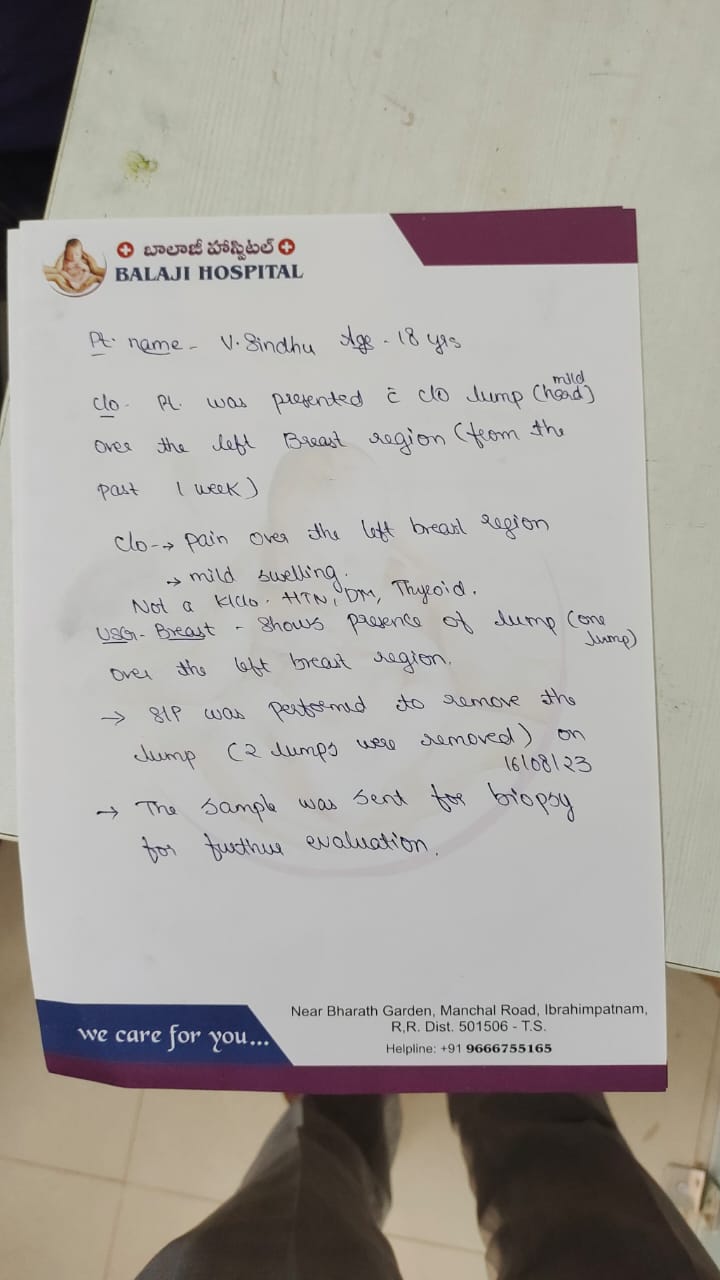 బాలాజీ హాస్పిటల్
BALAJI HOSPITAL
Pt. name - V. Sindhu Age - 18 yrs
mild
c/o - Pt. was presented c̄ c/o lump (hard)
over the left Breast region (from the
past 1 week)
c/o → pain over the left breast region
→ mild swelling.
Not a k/c/o. HTN, DM, Thyroid.
USG - Breast - Shows presence of lump (one
lump)
over the left breast region.
→ S/P was performed to remove the
lump (2 lumps were removed) on
16/08/23
→ The sample was sent for biopsy
for further evaluation.
we care for you...
Near Bharath Garden, Manchal Road, Ibrahimpatnam,
R,R. Dist. 501506 - T.S.
Helpline: +91 9666755165